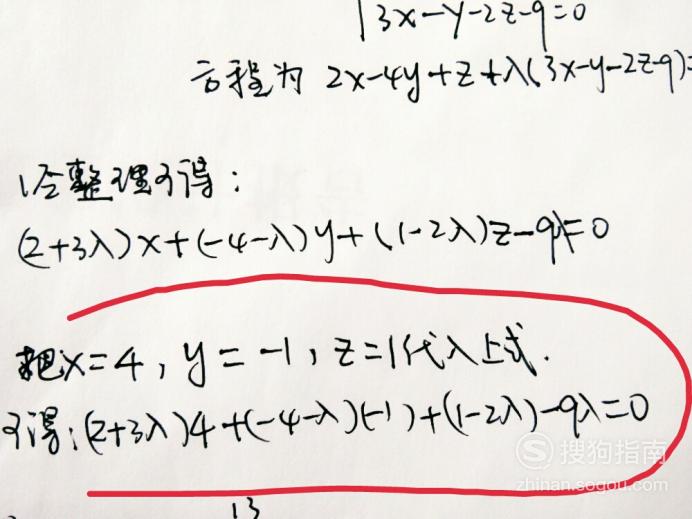 3x-y-2z-9=0
方程为 2x-4y+z+λ(3x-y-2z-9)=
整理可得:
(2+3λ)x+(-4-λ)y+(1-2λ)z-9λ=0
把x=4, y=-1, z=1代入上式.
可得:(2+3λ)4+(-4-λ)(-1)+(1-2λ)-9λ=0
S 搜狗指南
zhinan.sogou.com
13